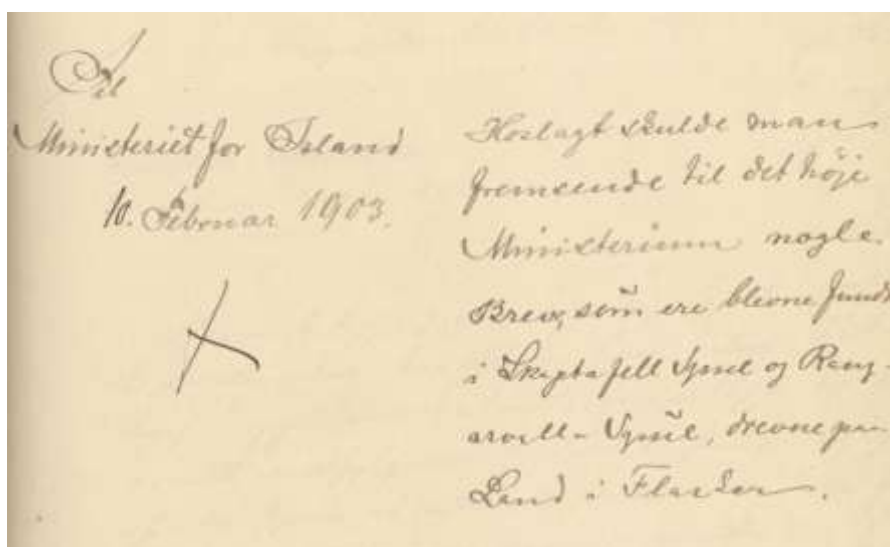 Til
Ministeriet for Island
10. Februar 1903.
Hoslagt skulde man
fremsende til det höje
Ministerium nogle
Breve, som ere blevne fundne
i Skaptafell Syssel og Rang-
arvalla Syssel, drevne paa
Land i Flasker.